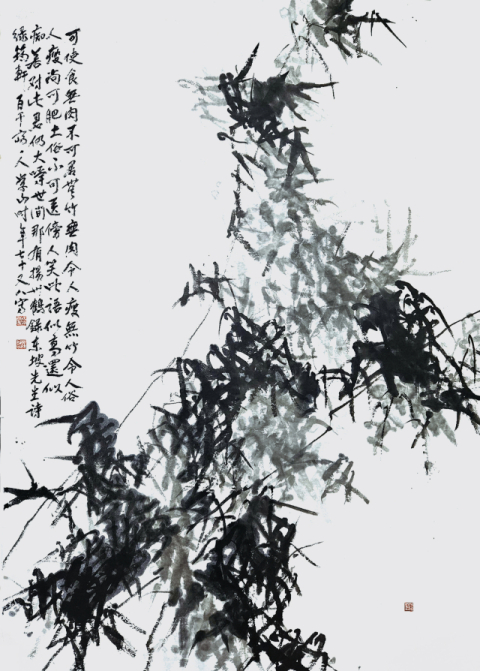 可使食無肉不可居無竹無肉令人瘦無竹令人俗
人瘦尚可肥士俗不可医傍人笑此語似高還似
痴若對此君仍大嚼世间那有揚州鶴錄东坡先生詩
綠筠軒 時年七十又八寫